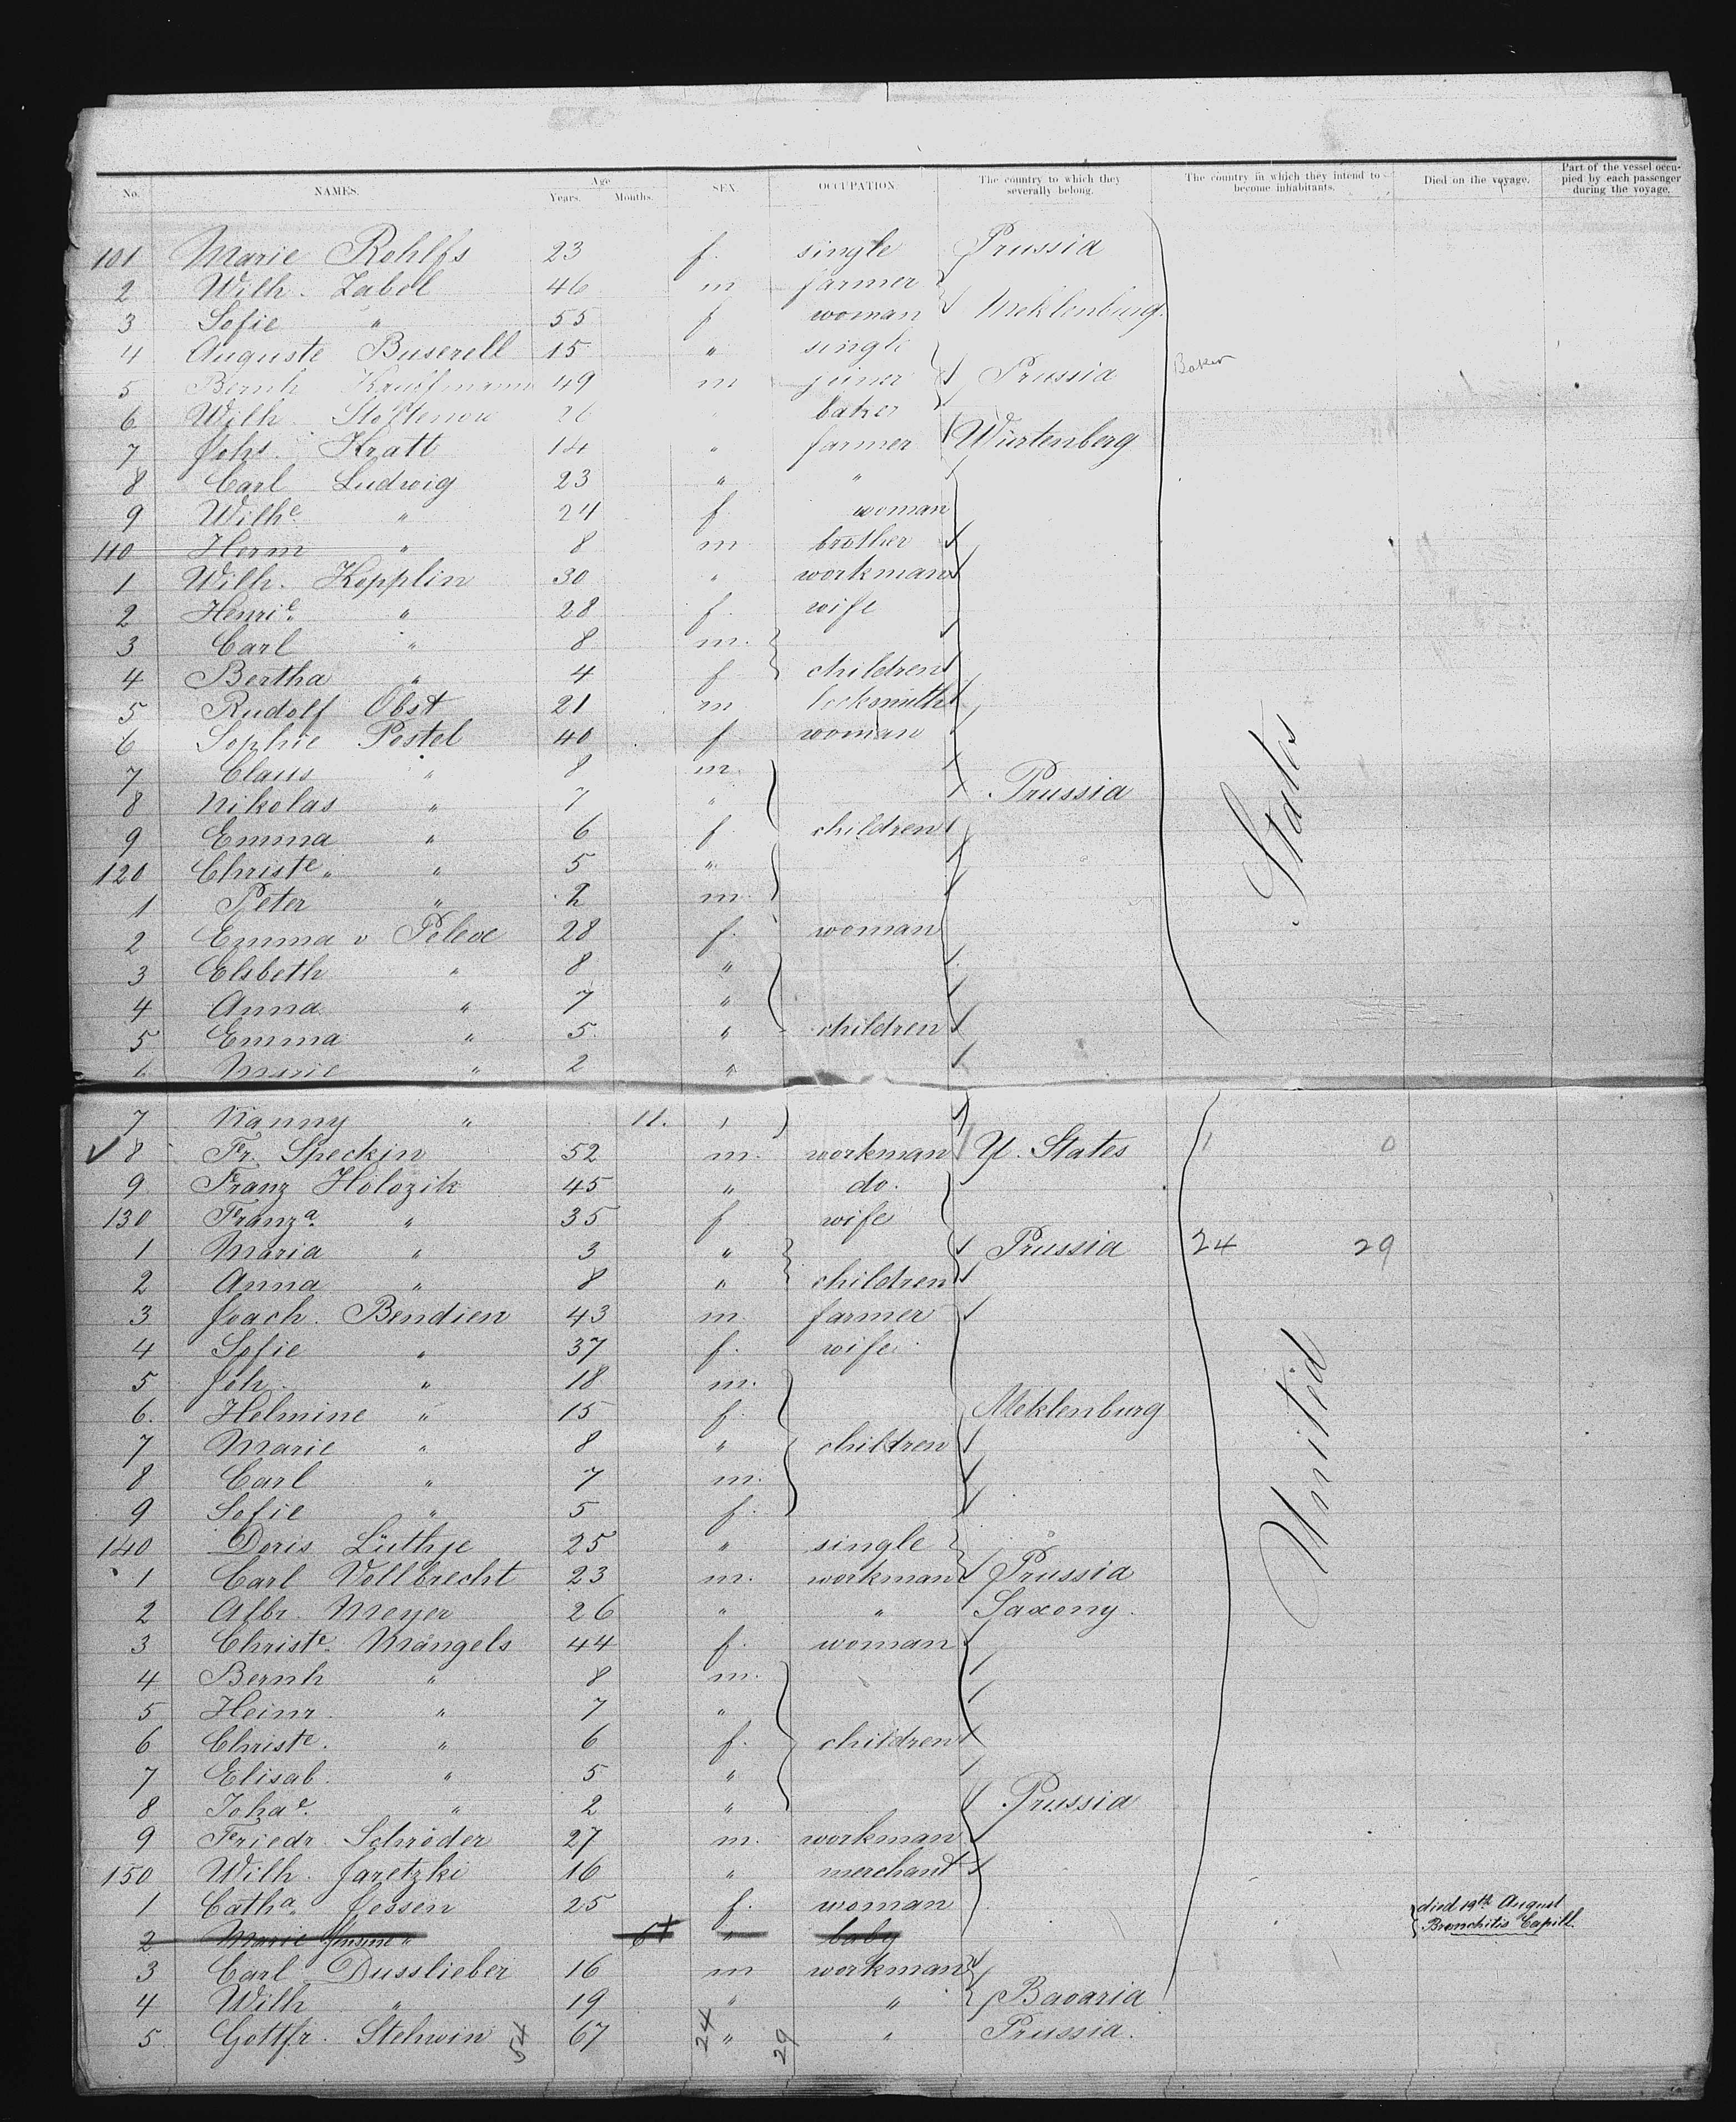 No. NAMES. Age Years. Months. SEX. OCCUPATION. The country to which they severally belong. The country in which they intend to become inhabitants. Died on the voyage. Part of the vessel occupied by each passenger during the voyage.
101 Marie Rohlfs 23 f. single Prussia
2 Wilh. Zabel 46 m farmer
3 Sofie " 55 f woman Meklenburg.
4 Auguste Buserell 15 " single
5 Bernh Kauffmann 49 m joiner Prussia Baker
6 Wilh. 26 " baker
7 Johs. Kratt 14 " farmer Würtenberg
8 Carl Ludwig 23 " "
9 Wilhe. " 24 f. woman
110 Herm " 8 m brother
1 Wilh. Kopplin 30 " workman
2 Henrie. " 28 f. wife
3 Carl " 8 m.
4 Bertha " 4 f children
5 Rudolf Obst 21 m locksmith
6 Sophie Postel 40 f woman
7 Claus " 8 m.
8 Nikolas " 7 " Prussia
9 Emma " 6 f. children
120 Christe. " 5 "
1 Peter " 2 m.
2 Emma v Peleve 28 f. woman
3 Elsbeth " 8 "
4 Anna " 7 "
5 Emma " 5 " children
6 Marie " 2 "
States
7 Nanny " 11. "
8 Fr. Speckin 52 m. workman U. States 1 0
9 Franz Holozik 45 " do.
130 Franza. " 35 f wife
1 Maria " 3 " Prussia 24 29
2 Anna " 8 " children
3 Joach. Bendien 43 m. farmer
4 Sofie " 37 f. wife
5 Joh. " 18 m.
6. Helmine " 15 f. Meklenburg
7 Marie " 8 " children
8 Carl " 7 m.
9 Sofie " 5 f.
140 Doris Lüthje 25 " single
1 Carl Vollbrecht 23 m. workman Prussia
2 Albr. Meyer 26 " " Saxony.
3 Christe. Mangels 44 f. woman
4 Bernh " 8 m.
5 Heinr. " 7 "
6 Christe. " 6 f. children
7 Elisab. " 5 "
8 Johae. " 2 " Prussia
9 Friedr. Schröder 27 m. workman
150 Wilh. Jaretzki 16 " merchant
1 Catha. Jessen 25 f. woman
2 Marie " 6 " baby died 19th August
Bronchitis Capill.
3 Carl Dusslieber 16 m workman
4 Wilh " 19 " " Bavaria
5 Gottfr. Stehwin 67 " " Prussia.
United
54 24 29